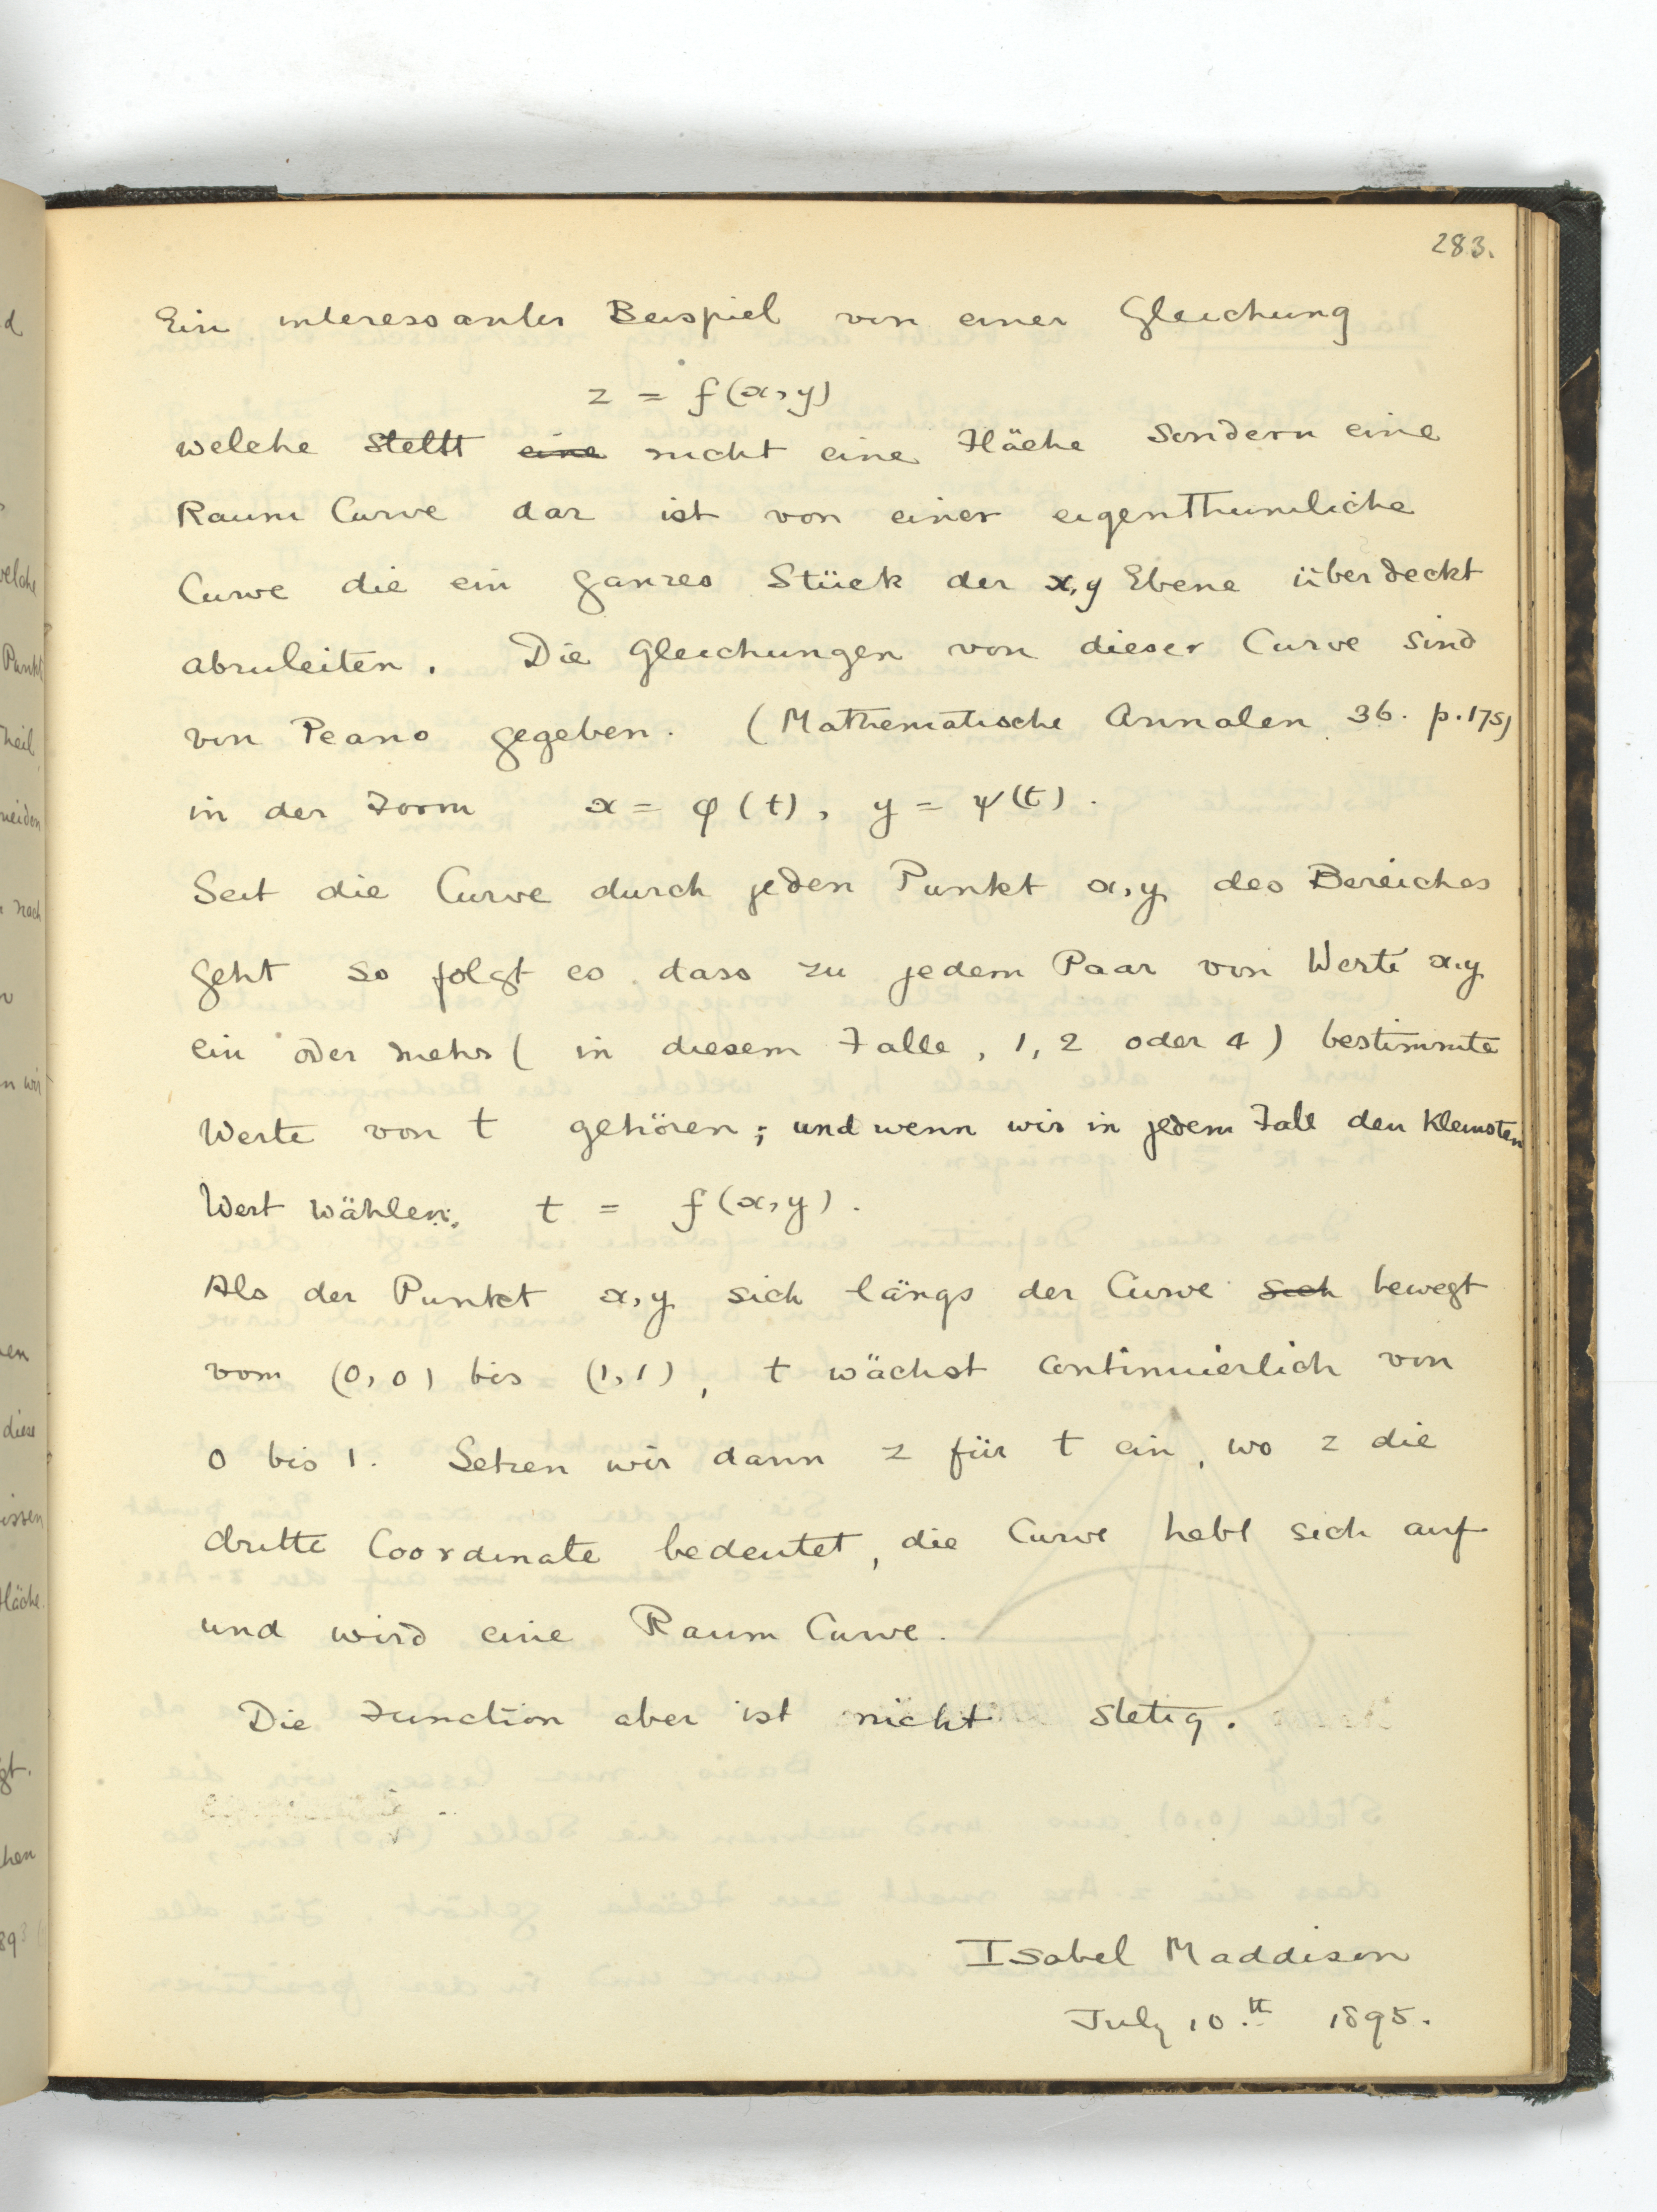 283.
Ein interessanter Beispiel von einer Gleichung
z = f(x,y)
welche stellt eine nicht eine Fläche sondern eine
Raum Curve dar ist von einer eigenthumliche
Curve die ein ganzes Stück der x,y Ebene überdeckt
abzuleiten. Die Gleichungen von dieser Curve sind
von Peano gegeben. (Mathematische Annalen 36. p.175)
in der Form x = φ(t), y = ψ(t).
Seit die Curve durch jeden Punkt x,y des Bereiches
geht so folgt es dass zu jedem Paar von Werte x,y
ein oder mehr (in diesem Falle, 1, 2 oder 4) bestimmte
Werte von t gehören; und wenn wir in jedem Fall den kleinsten
Wert wählen, t = f(x,y).
Als der Punkt x,y sich längs der Curve sich bewegt
vom (0,0) bis (1,1), t wächst continuierlich von
0 bis 1. Setzen wir dann z für t ein, wo z die
dritte Coordinate bedeutet, die Curve hebt sich auf
und wird eine Raum Curve.
Die Function aber ist nicht stetig.
Isabel Maddison
July 10th 1895.